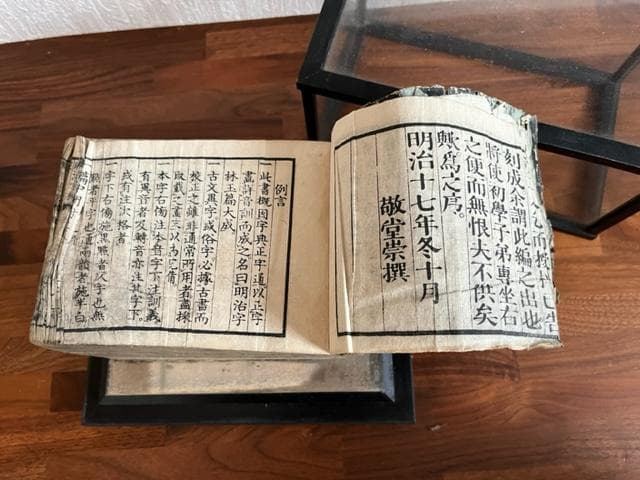 刻成余謂此編之出也
將使初學子弟專坐右
之便而無恨夫不供矣
歟為之序。
明治十七年冬十月
敬堂崇撰
例言
一此書概因字典正字通以正字
畫詳音訓而成之名曰明治字
林玉篇大成
一古文異字或俗字必據古書而
校正之雖非通常所用者盡採
取載之
一本字右傍注本音字下注訓義
有異音者及轉音亦注其字下
或有注次格者
一字下右傍施黑點者仄字也無